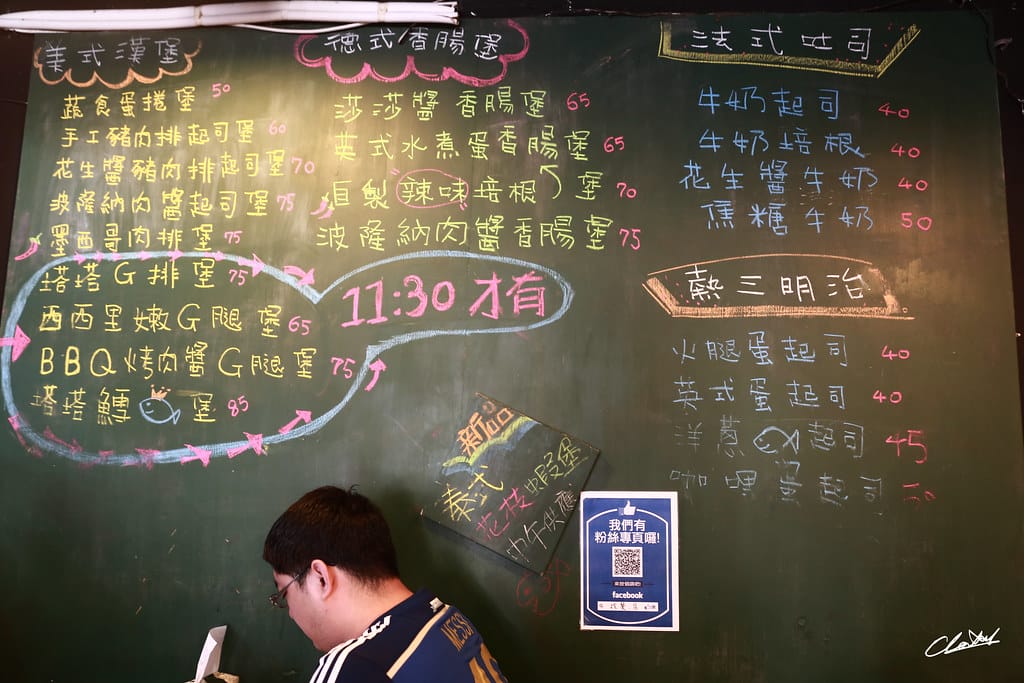 美式漢堡
蔬食蛋捲堡 50
手工豬肉排起司堡 60
花生醬豬肉排起司堡 70
波隆納肉醬起司堡 75
墨西哥肉排堡 75
塔塔G排堡 75
西西里嫩G腿堡 65
BBQ烤肉醬G腿堡 75
塔塔鱈堡 85
11:30才有
德式香腸堡
莎莎醬香腸堡 65
英式水煮蛋香腸堡 65
自製辣味培根堡 70
波隆納肉醬香腸堡 75
法式吐司
牛奶起司 40
牛奶培根 40
花生醬牛奶 40
焦糖牛奶 50
熱三明治
火腿蛋起司 40
英式蛋起司 40
洋蔥起司 45
咖哩起司 50
新品
泰式
花枝蝦堡
中午供應
我們有
粉絲專頁囉!
facebook
MESSI